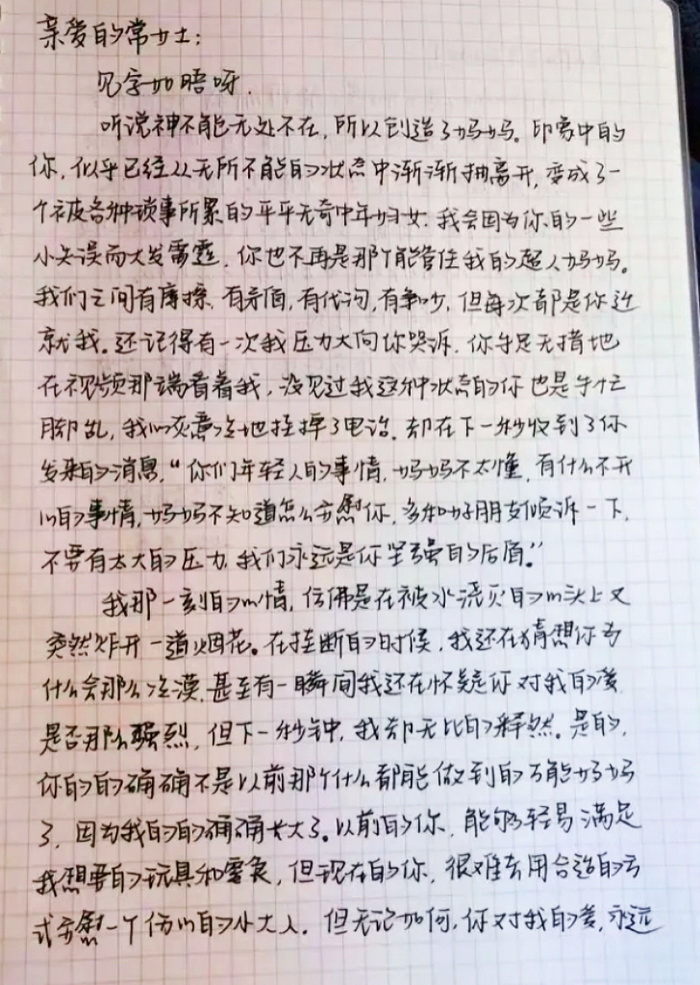 亲爱的常女士：
见字如晤呀．
听说神不能无处不在，所以创造了妈妈。印象中的
你，似乎已经从无所不能的状态中渐渐抽离开，变成了一
个被各种琐事所累的平平无奇中年妇女．我会因为你的一些
小失误而大发雷霆．你也不再是那个能管住我的超人妈妈。
我们之间有摩擦，有矛盾，有代沟，有争吵，但每次都是你迁
就我。还记得有一次我压力大向你哭诉．你手足无措地
在视频那端看着我，没见过我这种状态的你也是手忙
脚乱，我心灰意冷地挂掉了电话．却在下一秒收到了你
发来的消息，“你们年轻人的事情，妈妈不太懂，有什么不开
心的事情，妈妈不知道怎么安慰你，多和好朋友倾诉一下，
不要有太大的压力，我们永远是你坚强的后盾。”
我那一刻的心情，仿佛是在被水浇灭的心头上又
突然炸开一道烟花。在挂断的时候，我还在猜想你为
什么会那么冷漠．甚至有一瞬间我还在怀疑你对我的爱
是否那么强烈，但下一秒钟，我却无比的释然．是的，
你的的确确不是以前那个什么都能做到的万能妈妈
了，因为我的的确确长大了。以前的你，能够轻易满足
我想要的玩具和零食，但现在的你，很难去用合适的方
式安慰一个伤心的小大人．但无论如何，你对我的爱，永远